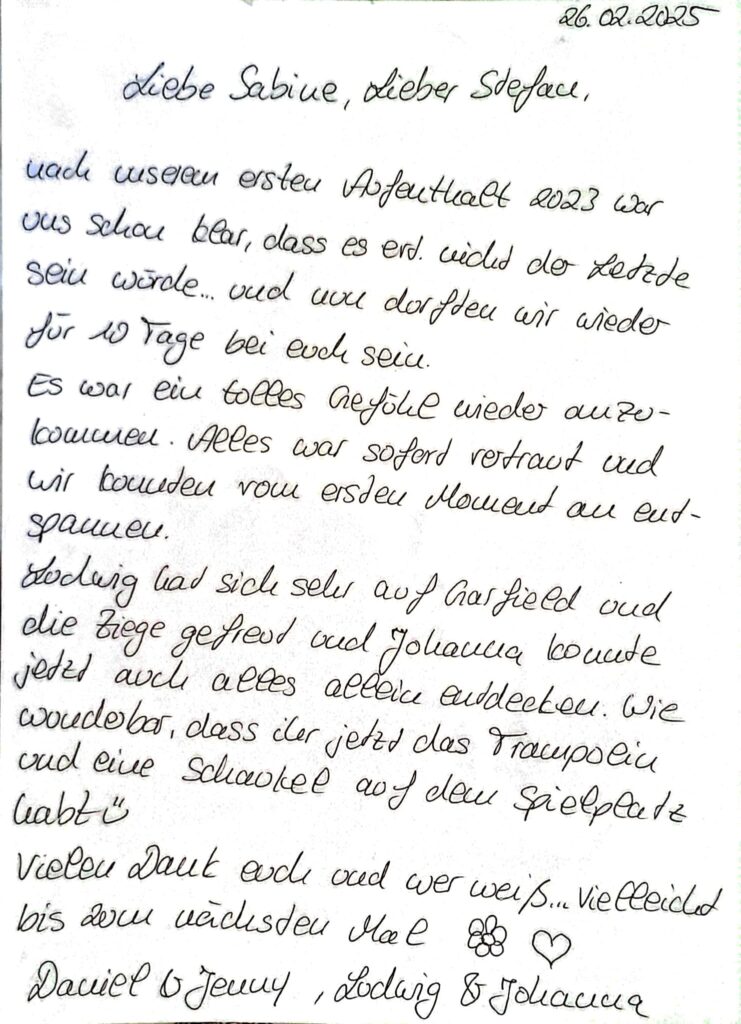 26.02.2025
Liebe Sabine, Lieber Stefan,
nach unserem ersten Aufenthalt 2023 war
uns schon klar, dass es erst. nicht der Letzte
sein würde... und nun durften wir wieder
für 10 Tage bei euch sein.
Es war ein tolles Gefühl wieder anzu-
kommen. Alles war sofort vertraut und
wir konnten vom ersten Moment an ent-
spannen.
Ludwig hat sich sehr auf Garfield und
die Ziege gefreut und Johanna konnte
jetzt auch alles allein entdecken. Wie
wunderbar, dass ihr jetzt das Trampolin
und eine Schaukel auf dem Spielplatz
habt☺
Vielen Dank euch und wer weiß... Vielleicht
bis zum nächsten Mal ♡
Daniel & Jenny, Ludwig & Johanna